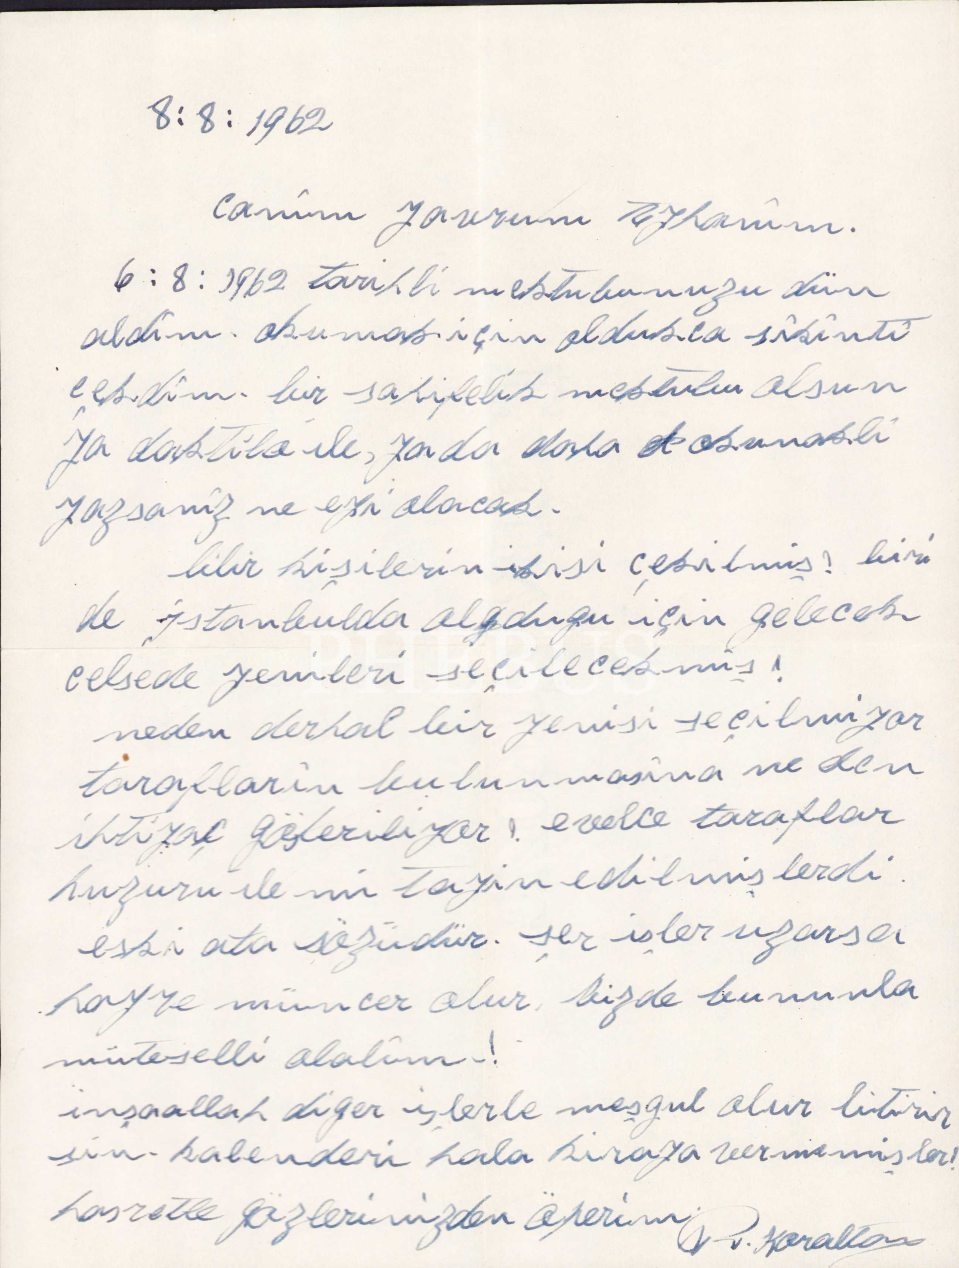 8:8:1962
canım yavrum Ayhanım.
6:8:1962 tarihli mektubunuzu dün
aldım. okumak için oldukca sıkıntı
çekdim. bir sahifelik mektubu olsun
ya daktilo ile, yada daha okunaklı
yazsanız ne eyi olacak.
bilir kişilerin ikisi çekilmiş! biri
de İstanbulda olduğu için gelecek
celsede yenileri seçilecekmiş!
neden derhal bir yenisi seçilmiyor
tarafların bulunmasına neden
ihtiyaç gösteriliyor! evelce taraflar
huzuru ile mi tayin edilmişlerdi.
eski ata sözüdür. şer işler uzarsa
hayre müncer olur. bizde bununla
müteselli olalım.!
inşaallah diger işlerle meşgul olur bitirir
sin. kalenderi hala kiraya vermemişler!
hasretle gözlerinizden öperim.
R. Koraltan
PHEBUS